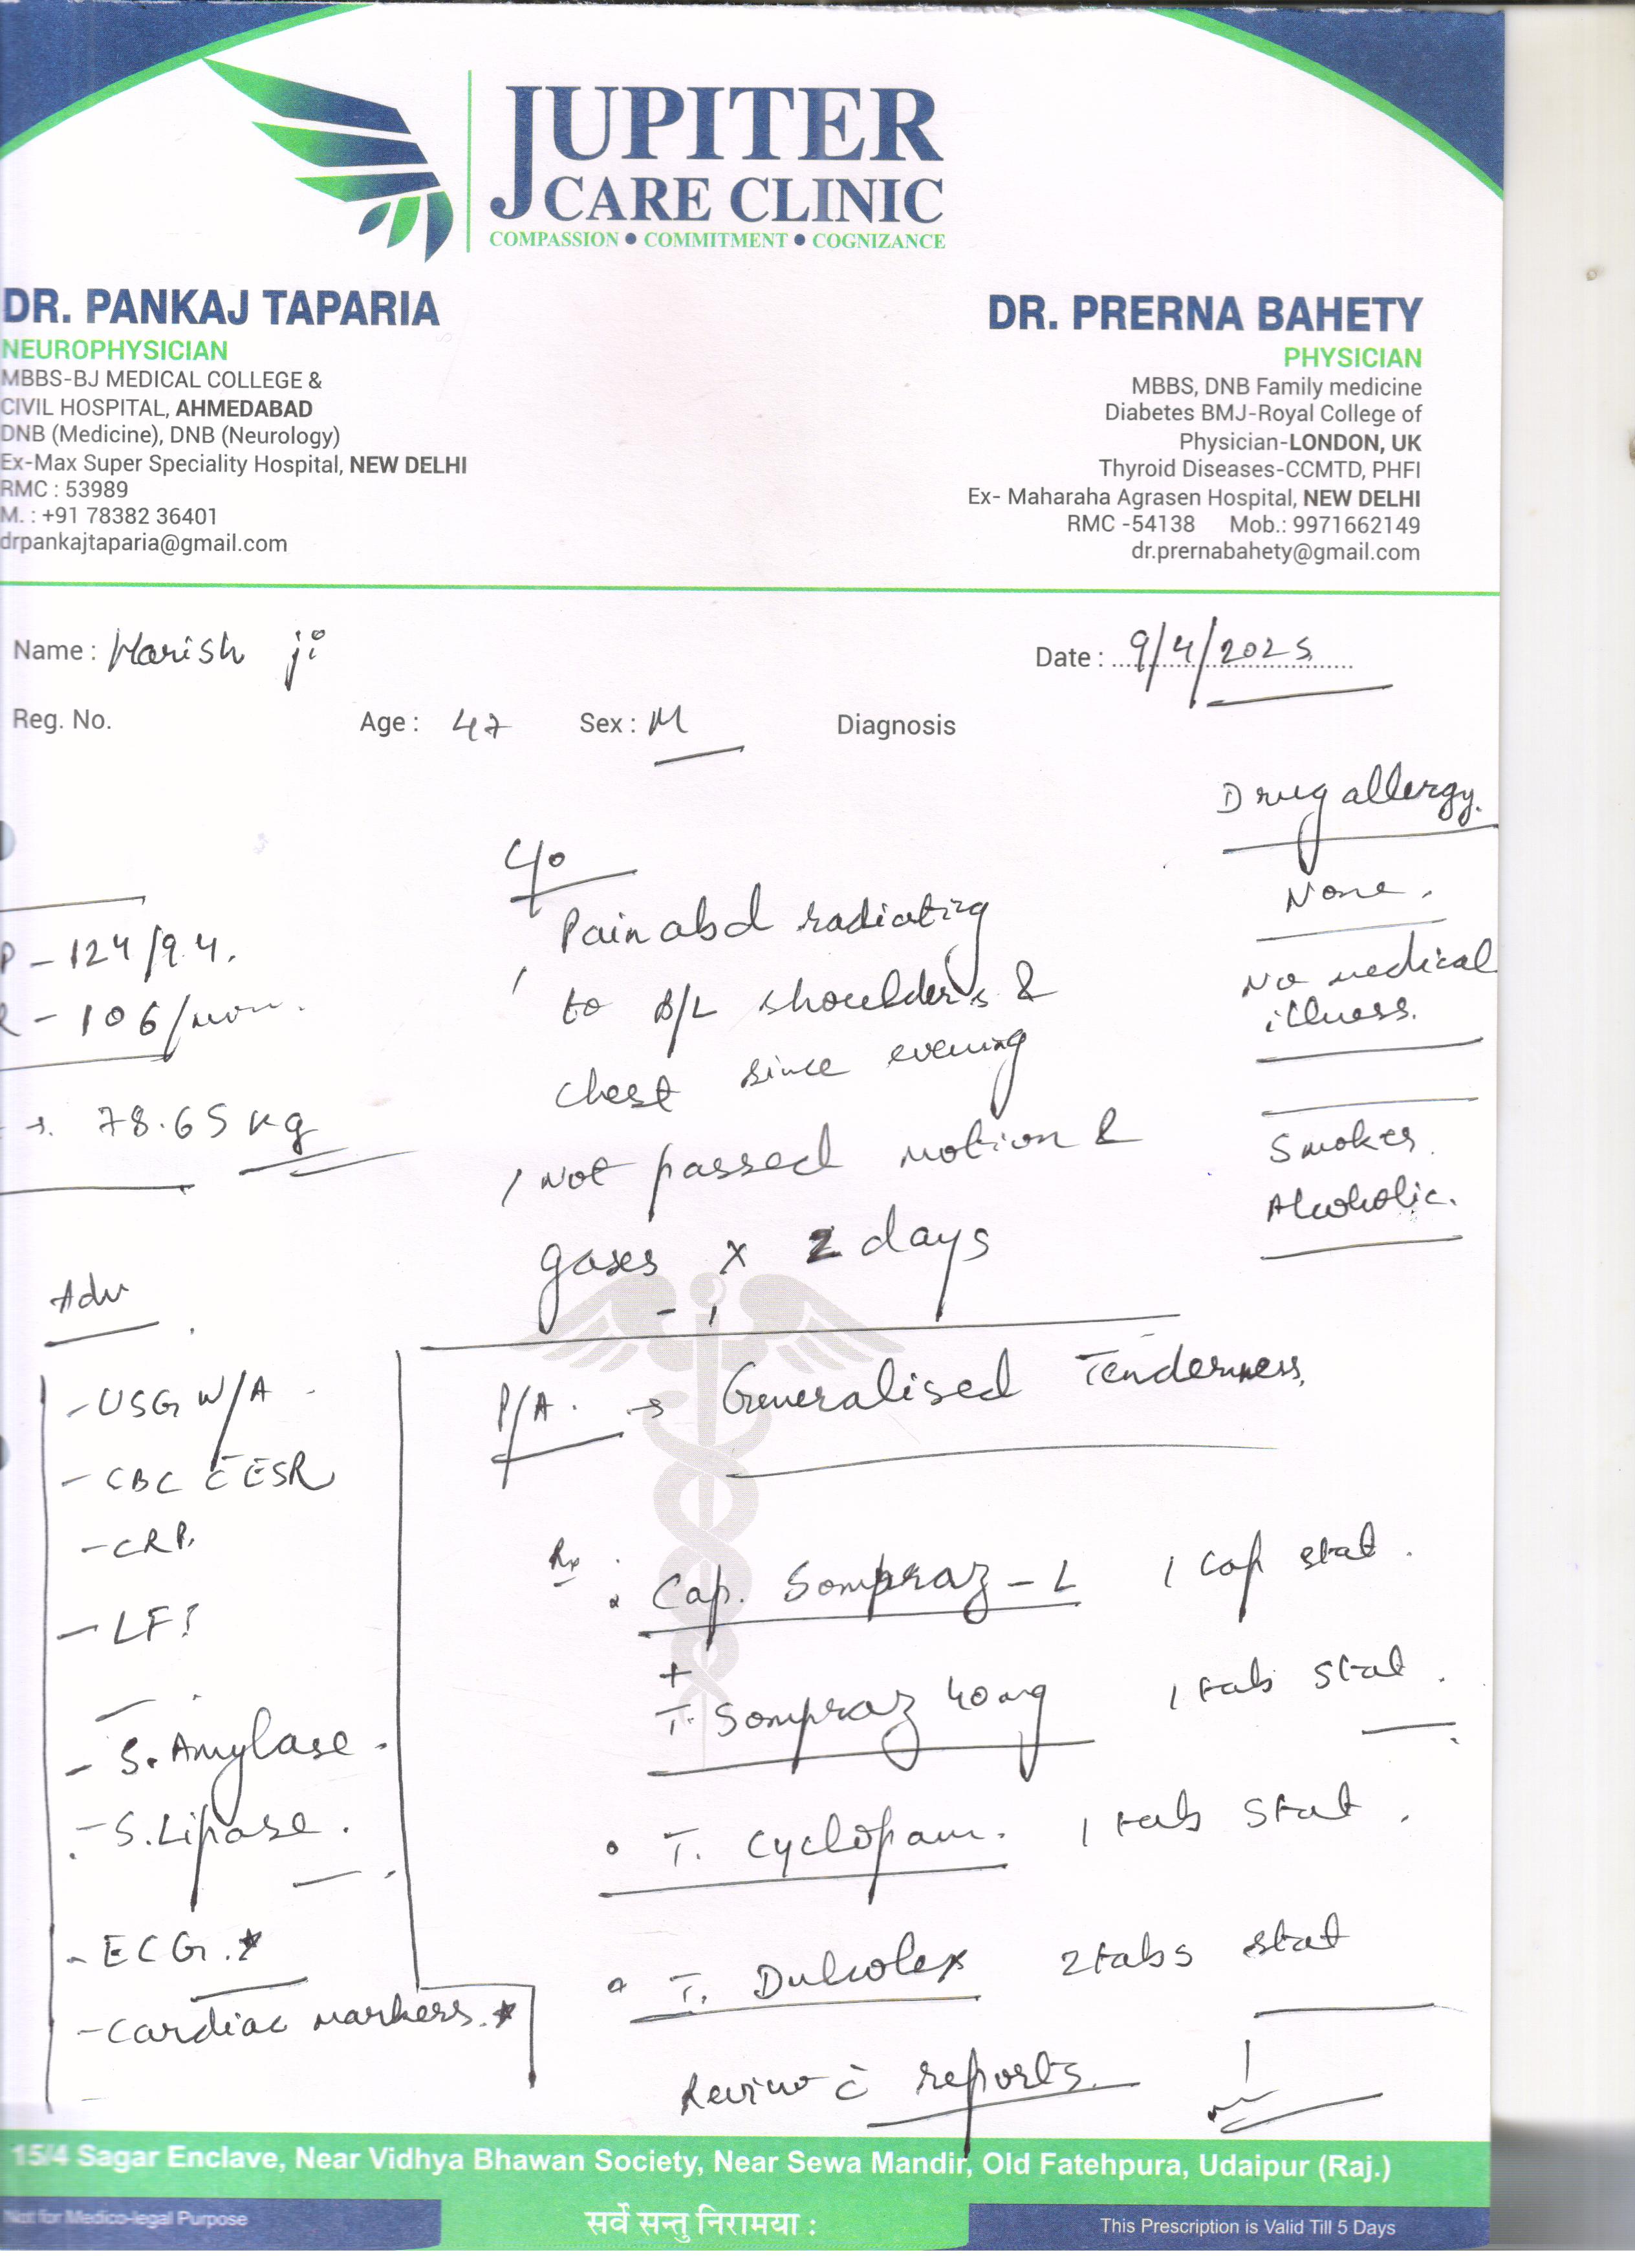 JUPITER
CARE CLINIC
COMPASSION ● COMMITMENT ● COGNIZANCE
DR. PANKAJ TAPARIA
NEUROPHYSICIAN
MBBS-BJ MEDICAL COLLEGE &
CIVIL HOSPITAL, AHMEDABAD
DNB (Medicine), DNB (Neurology)
Ex-Max Super Speciality Hospital, NEW DELHI
RMC : 53989
M. : +91 78382 36401
drpankajtaparia@gmail.com
DR. PRERNA BAHETY
PHYSICIAN
MBBS, DNB Family medicine
Diabetes BMJ-Royal College of
Physician-LONDON, UK
Thyroid Diseases-CCMTD, PHFI
Ex- Maharaha Agrasen Hospital, NEW DELHI
RMC -54138 Mob.: 9971662149
dr.prernabahety@gmail.com
Name : Harish ji
Date : 9/4/2025
Reg. No. Age : 47 Sex : M Diagnosis
Drug allergy.
None.
No medical
illness.
Smoker.
Alcoholic.
P - 124/94.
R - 106/min.
→. 78.65 kg
C/o
Pain abd radiating
to B/L shoulders &
chest since evening
Not passed motion &
gases x 2 days
P/A. → Generalised Tenderness.
Adv
- USG W/A
- CBC c̄ ESR
- CRP.
- LFT
- S. Amylase.
- S. Lipase.
- ECG. ★
- Cardiac markers. ★
Rx
Cap. Sompraz - L 1 cap stat.
+
T. Sompraz 40mg 1 tab stat.
• T. Cyclopam. 1 tab stat.
• T. Dulcolex 2 tabs stat
Review c̄ reports.
15/4 Sagar Enclave, Near Vidhya Bhawan Society, Near Sewa Mandir, Old Fatehpura, Udaipur (Raj.)
Not for Medico-legal Purpose
सर्वे सन्तु निरामया :
This Prescription is Valid Till 5 Days